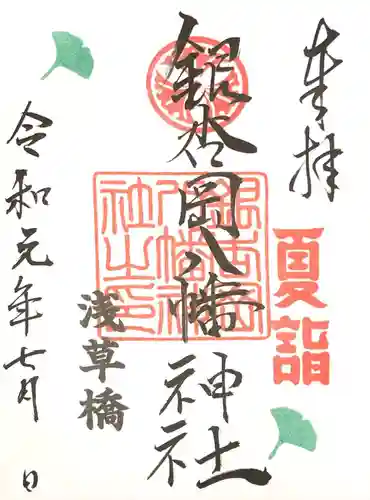 奉拝
夏詣
銀杏岡八幡神社
浅草橋
令和元年七月 日
銀杏岡八幡神社之印